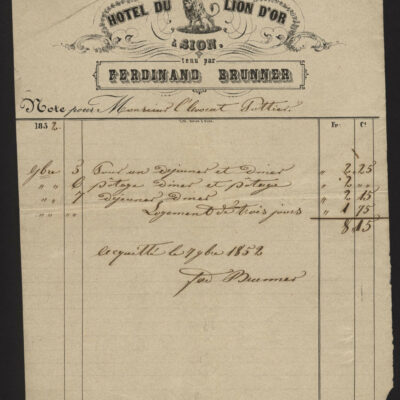 HOTEL DU LION D'OR
À SION,
tenu par
FERDINAND BRUNNER
Note pour Monsieur l'Avocat
1852. Fr. Ct.
9bre 5 Pour un dejeuner et diner " 2 25
" " 6 potage diner et potage " 2 "
" " 7 dejeuner diner " 2 15
" " " Logement de trois jours " 1 75
8 15
acquitté le 7 9bre 1852
Brunner